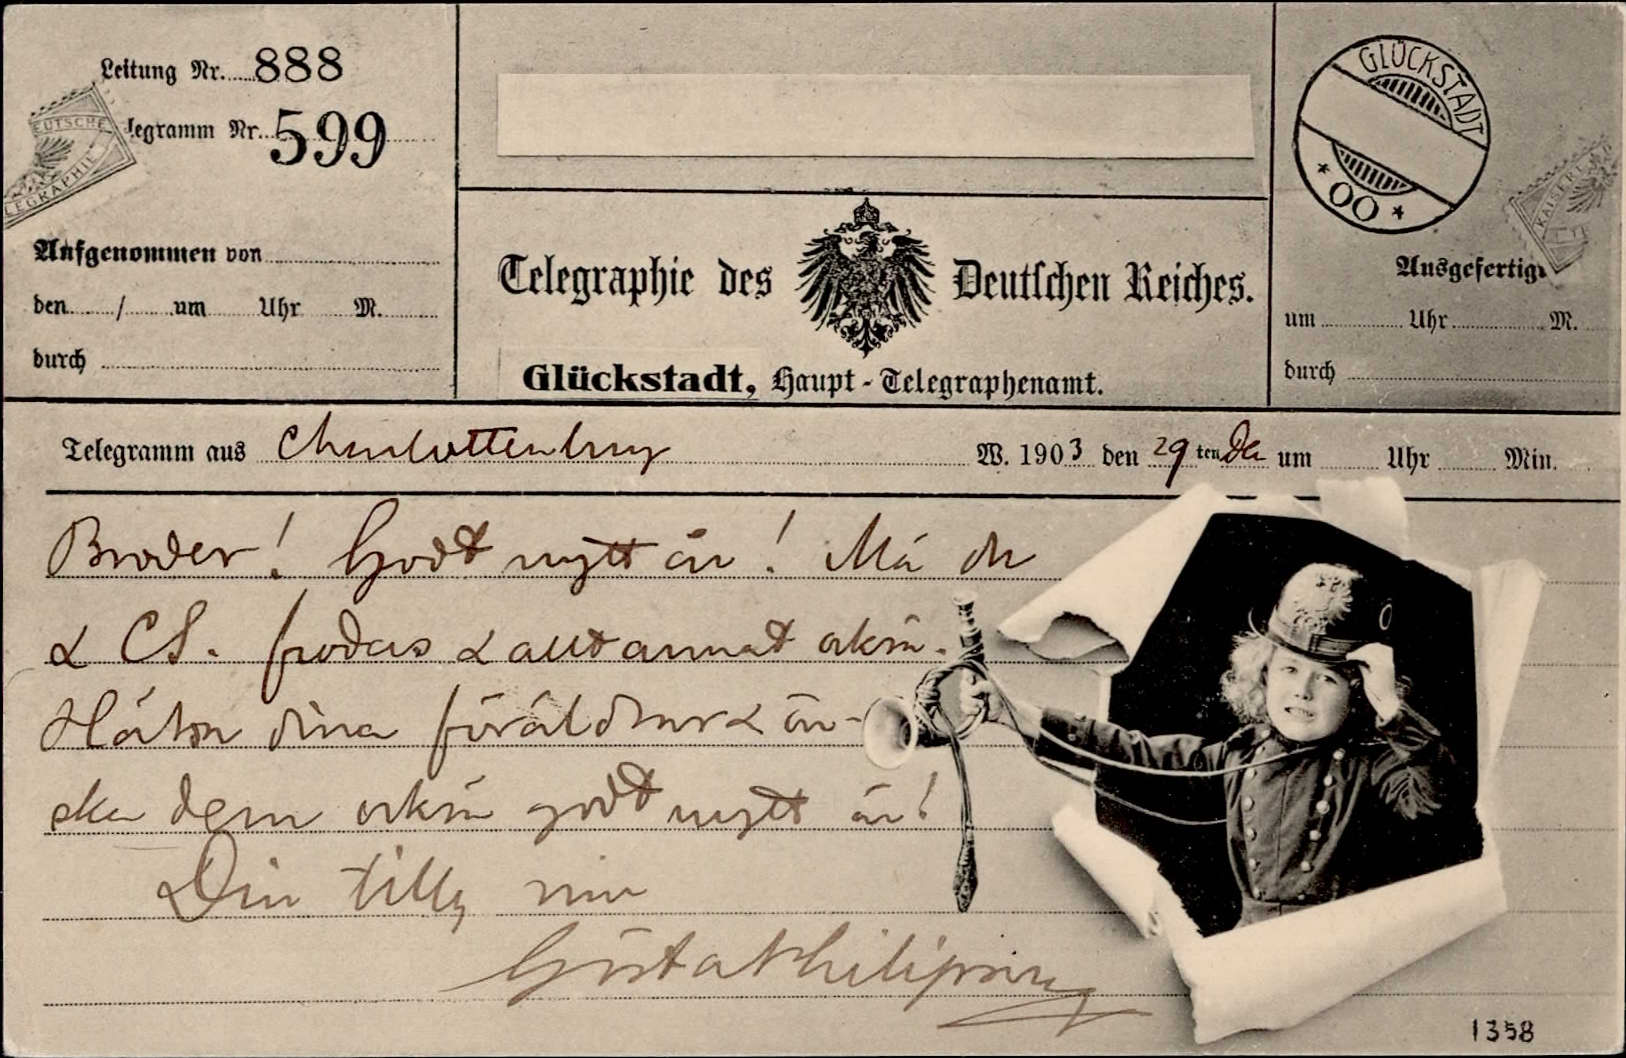 Leitung Nr. 888
legramm Nr. 599
EUTSCHE
LEGRAPHIE
Aufgenommen von
den / um Uhr M.
durch
Telegraphie des Deutſchen Reiches.
Glückstadt, Haupt-Telegraphenamt.
GLÜCKSTADT
* 00 *
KAISERL
Ausgefertigt
um Uhr M.
durch
Telegramm aus Charlottenburg W. 1903 den 29ten De um Uhr Min.
Broder! Godt nytt år! Må du
& CS. frodas & allt annat också.
Hälsa dina föräldrar & ön-
ska dem också godt nytt år!
Din
Gösta Philipson
1358